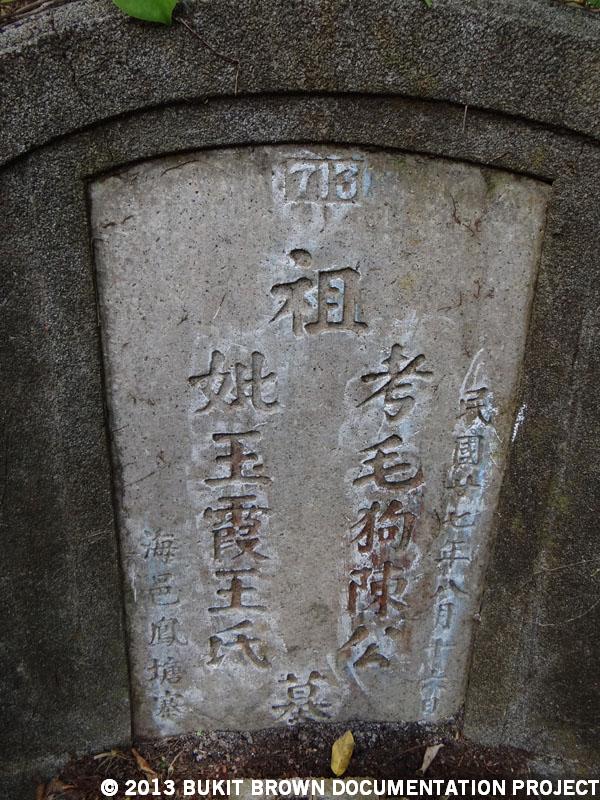 713
祖
民國廿七年八月十六日
考毛狗陳公
妣玉霞王氏
海邑鳳塘寨
墓
© 2013 BUKIT BROWN DOCUMENTATION PROJECT